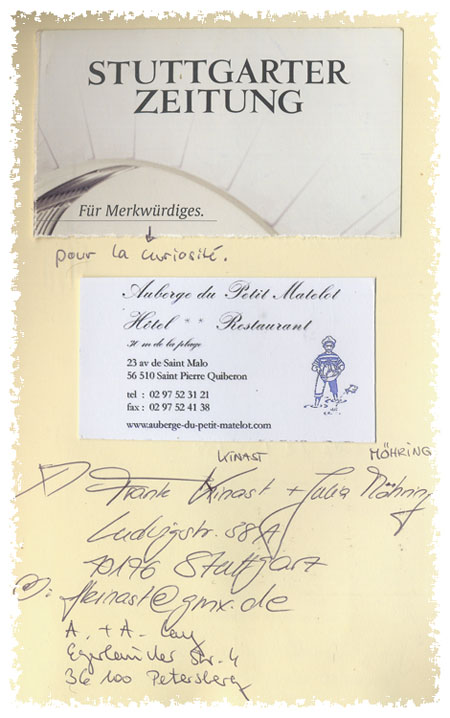 STUTTGARTER
ZEITUNG
Für Merkwürdiges.
pour la curiosité.
Auberge du Petit Matelot
Hôtel ** Restaurant
de la plage
23 av de Saint Malo
56 510 Saint Pierre Quiberon
tel : 02 97 52 31 21
fax : 02 97 52 41 38
www.auberge-du-petit-matelot.com
KINAST MÖHRING
Frank Kinast + Julia Möhring
Ludwigstr. 58A
70176 Stuttgart
@: fkinast@gmx.de
A. + A.
Egerländer Str. 4
36 100 Petersberg